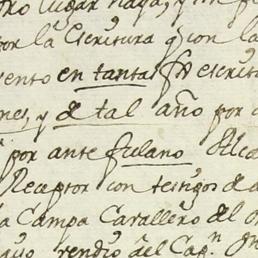 otro lugar haya, y un
por la Escritura q̃ con la
sento en tanta f.s escrit
nes, y de tal año por
por ante fulano Alca
Receptor con testigos de
la Campa Cavallero del
vendio del Cap.n